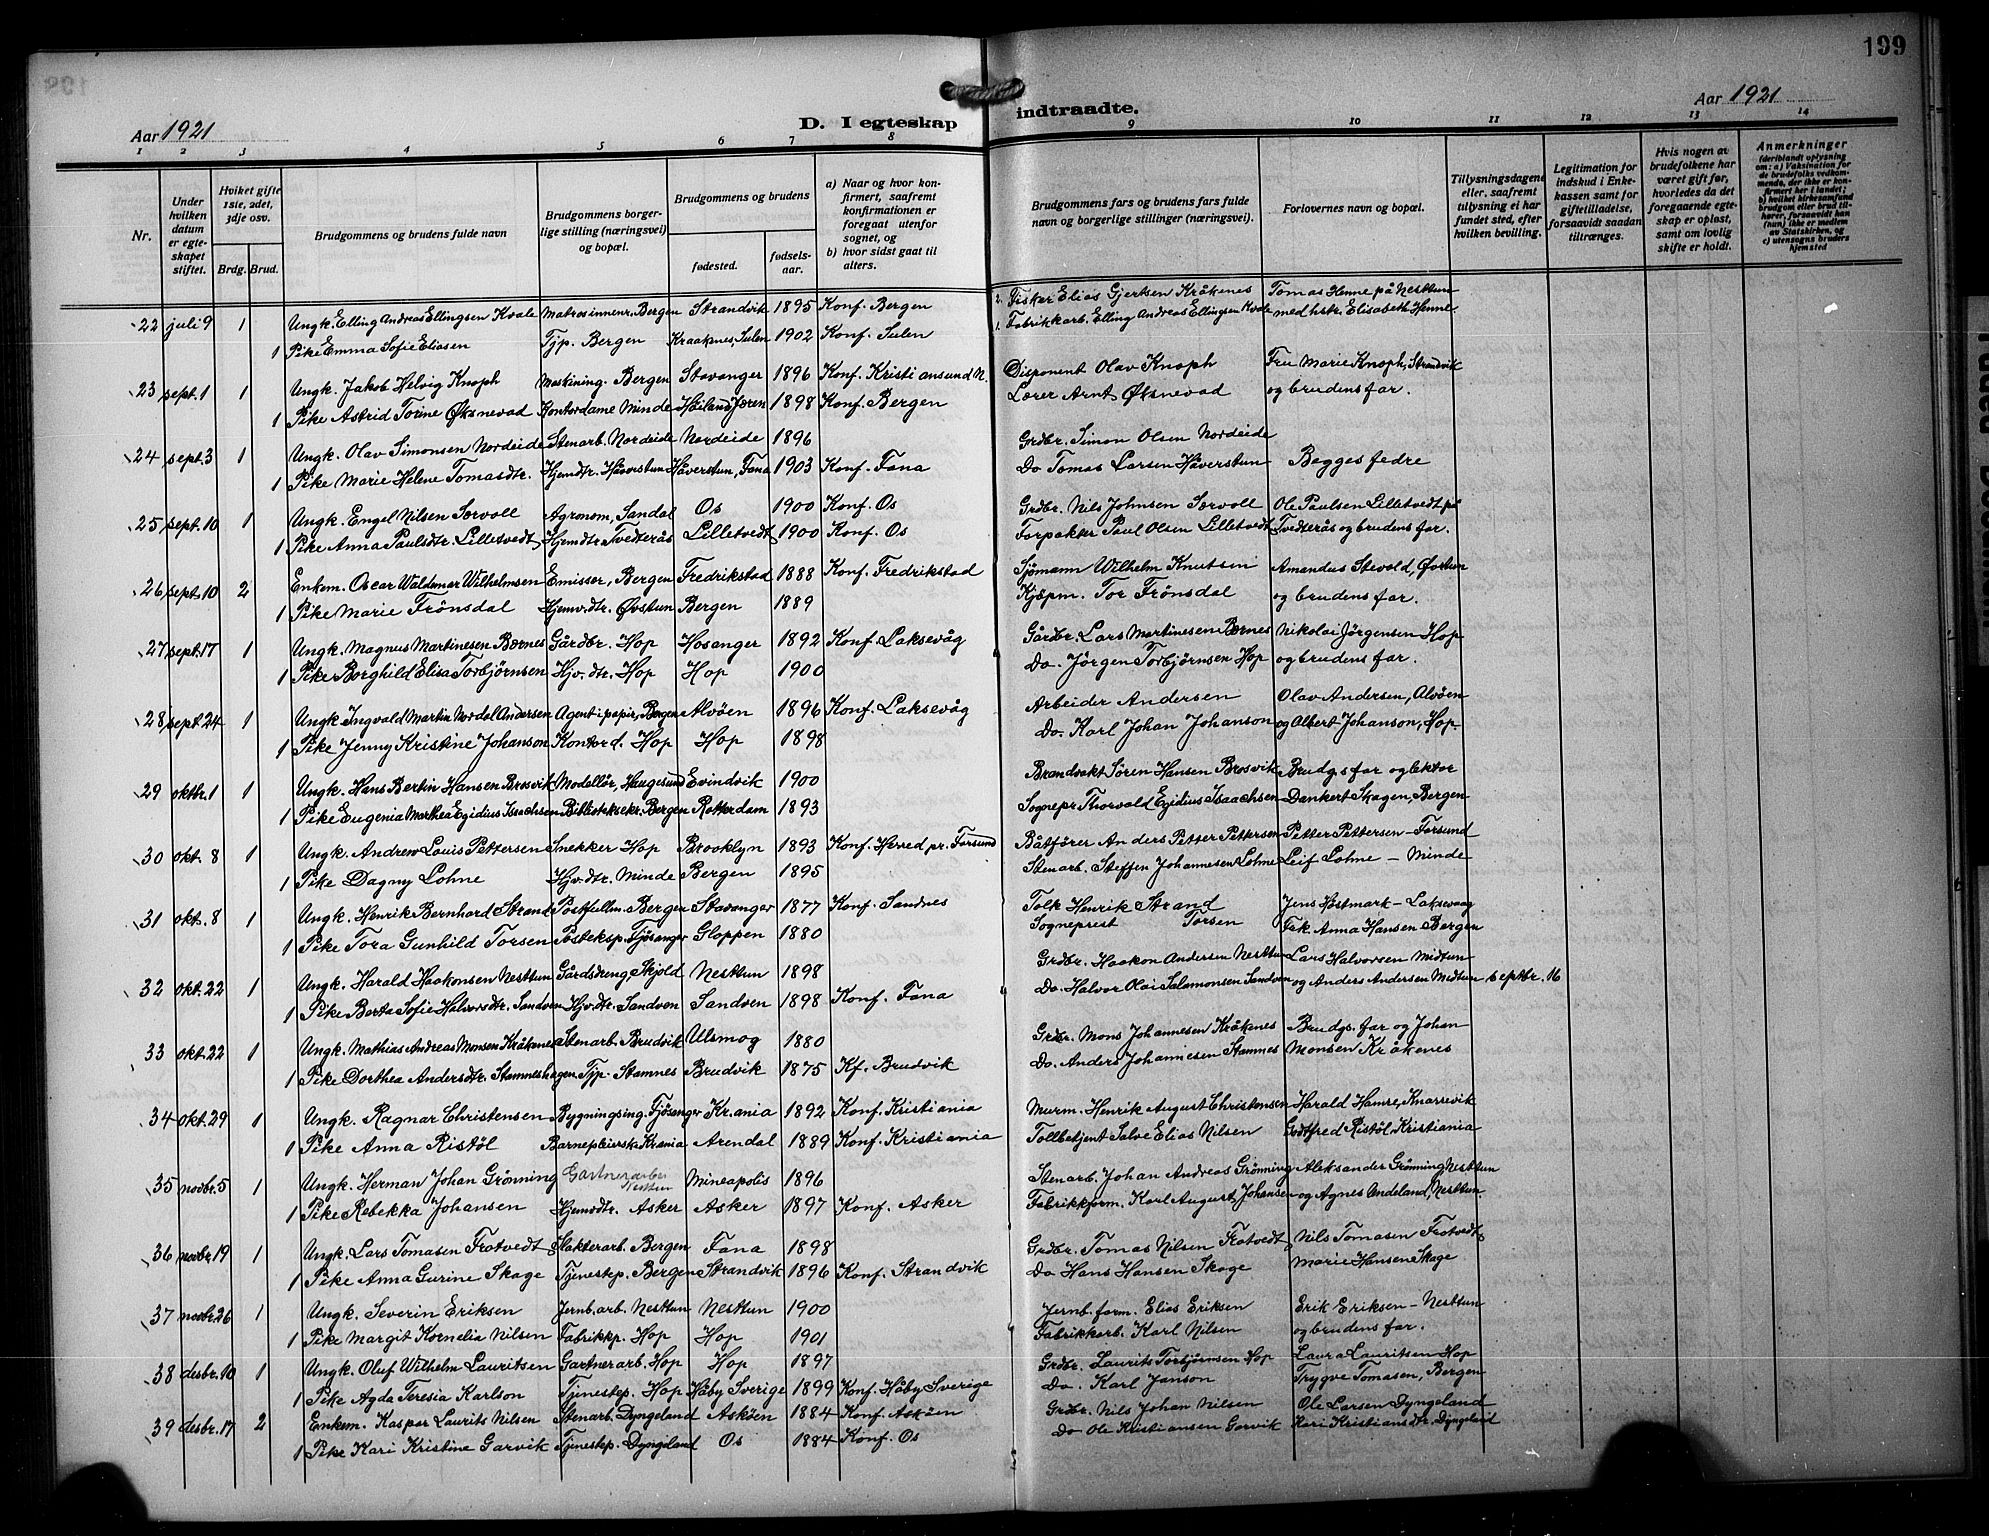 199
Aar 1921
D. I egteskap indtraadte.
Aar 1921
1 2 3 4 5 6 7 8 9 10 11 12 13 14
Nr.
Under hvilken datum er egteskapet stiftet.
Hvilket gifte 1ste, 2det, 3dje osv.
Brdg. Brud.
Brudgommens og brudens fulde navn
Brudgommens borgerlige stilling (næringsvei) og bopæl.
Brudgommens og brudens
fødested.
fødselsaar.
a) Naar og hvor konfirmert, saafremt konfirmationen er foregaat utenfor sognet, og
b) hvor sidst gaat til alters.
Brudgommens fars og brudens fars fulde navn og borgerlige stillinger (næringsvei).
Forlovernes navn og bopæl.
Tillysningsdagene eller, saafremt tillysning ei har fundet sted, efter hvilken bevilling.
Legitimation for indskud i Enkekassen samt for giftetilladelse, forsaavidt saadan tiltrænges.
Hvis nogen av brudefolkene har været gift før, hvorledes da det foregaaende egteskap er opløst, samt om lovlig skifte er holdt.
Anmerkninger
(deriblandt oplysning om: a) Vaksination for de brudefolks vedkommende, der ikke er konfirmert her i landet; b) hvilket kirkesamfund brudgom eller brud tilhører, forsaavidt han (hun) ikke er medlem av Statskirken, og c) utensogns bruders hjemsted
22 juli 9 1 Ungk. Elling Andreas Ellingsen Kvale Matros innenr. Bergen Strandvik 1895 Konf. Bergen 2. Fisker Elias Gjertsen Kråkenes Tomas Henne på Nesttun
1 Pike Emma Sofie Eliasen Tjp. Bergen Kraaknes, Sulen 1902 Konf. Sulen 1. Fabrikkarb. Elling Andreas Ellingsen Kvale med hstr. Elisabeth Henne
23 sept. 1 1 Ungk. Jakob Helvig Knoph Maskining. Bergen Stavanger 1896 Konf. Kristiansund N. Disponent Olav Knoph Fru Marie Knoph, Strandvik
1 Pike Astrid Torine Øksnevad Kontordame Minde Høiland Jæren 1898 Konf. Bergen Lærer Arnt Øksnevad og brudens far.
24 sept. 3 1 Ungk. Olav Simonsen Nordeide Stenarb. Nordeide Nordeide 1896 Grdbr. Simon Olsen Nordeide
1 Pike Marie Helene Tomasdtr. Hjemdtr. Håverstun Håverstun, Fana 1903 Konf. Fana Do Tomas Larsen Håverstun Begges fedre
25 sept. 10 1 Ungk. Engel Nilsen Sørvoll Agronom, Sandal Os 1900 Konf. Os Grdbr. Nils Johnsen Sørvoll Ole Paulsen Lilletvedt på
1 Pike Anna Paulsdtr. Lilletvedt Hjemdtr. Tvedterås Lilletvedt 1900 Konf. Os Forpakter Paul Olsen Lilletvedt Tvedterås og brudens far.
26 sept. 10 2 Enkem. Oscar Waldemar Wilhelmsen Emissær, Bergen Fredrikstad 1888 Konf. Fredrikstad Sjömann Wilhelm Knutsen Amandus Stevold, Øvstun
1 Pike Marie Frönsdal Hjemv.dtr. Øvstun Bergen 1889 Kjöpm. Tor Frönsdal og brudens far.
27 sept. 17 1 Ungk. Magnus Martinesen Bærnes Gårdbr. Hop Hosanger 1892 Konf. Laksevåg Gårdbr. Lars Martinesen Bærnes Nikolai Jörgensen Hop
1 Pike Borghild Elisa Torbjørnsen Hjv. dtr. Hop Hop 1900 Do. Jörgen Torbjørnsen Hop og brudens far.
28 sept. 24 1 Ungk. Ingvald Martin Nordal Andersen Agent i papir, Bergen Alvöen 1896 Konf. Laksevåg Arbeider Andersen Olav Andersen, Alvöen
1 Pike Jenny Kristine Johanson Kontord. Hop Hop 1898 Do. Karl Johan Johanson og Albert Johanson, Hop.
29 oktbr. 1 1 Ungk. Hans Bertin Hansen Brosvik Modellör, Haugesund Evindvik 1900 Brandvakt Sören Hansen Brosvik Brudgs far og lektor
1 Pike Eugenia Marthea Egidius Isaachsen Biblioteksekr. Bergen Rotterdam 1893 Sognepr. Thorvald Egidius Isaachsen Dankert Skagen, Bergen
30 okt. 8 1 Ungk. Andrew Louis Pettersen Snekker Hop Brooklyn 1893 Konf. Herred pr. Farsund Båtförer Anders Petter Pettersen Petter Pettersen - Farsund
1 Pike Dagny Lohne Hjv. dtr. Minde Bergen 1895 Stenarb. Steffen Johannesen Lohne Leif Lohne - Minde
31 okt. 8 1 Ungk. Henrik Bernhard Strand Postfullm. Bergen Stavanger 1877 Konf. Sandnes Tolk Henrik Strand Jens Höstmark - Laksevaag
1 Pike Tora Gunhild Torsen Posteksp. Fjösanger Gloppen 1880 Sogneprest Torsen Frk. Anna Hansen Bergen
32 okt. 22 1 Ungk. Harald Haakonsen Nesttun Gårdsdreng Skjold Nesttun 1898 Grdbr. Haakon Andersen Nesttun Lars Halvorsen - Midtun
1 Pike Berta Sofie Halvorsdtr. Sandven Hjv. dtr. Sandven Sandven 1898 Konf. Fana Do. Halvor Olai Salamonsen Sandven og Anders Andersen Midtun 6 septbr. 16
33 okt. 22 1 Ungk. Mathias Andreas Monsen Kråkenes Stenarb. Brudvik Ulsmog 1880 Grdbr. Mons Johannesen Kråkenes Brudgs. far og Johan
1 Pike Dorthea Andersdtr. Stamneshagen. Tjp. Stamnes Brudvik 1875 Kf. Brudvik Do. Anders Johannesen Stamnes Monsen Kråkenes
34 okt. 29 1 Ungk. Ragnar Christensen Bygningsing. Fjösanger Kr.ania 1892 Konf. Kristiania Murm. Henrik August Christensen Harald Hamre, Knarrevik
1 Pike Anna Ristöl Barnepleierske Kr.ania Arendal 1889 Konf. Kristiania Tollbetjent Salve Elias Nilsen Godtfred Ristöl, Kristiania
35 novbr. 5 1 Ungk. Herman Johan Grönning Gartnerarbei Nesttun Mineapolis 1896 Stenarb. Johan Andreas Grönning Aleksander Grönning Nesttun
1 Pike Rebekka Johansen Hjemvdtr. Asker Asker 1897 Konf. Asker Fabrikkform. Karl August Johansen og Agnes Andeland, Nesttun
36 novbr. 19 1 Ungk. Lars Tomasen Frotvedt Slakterarb. Bergen Fana 1898 Grdbr. Tomas Nilsen Frotvedt Nils Tomasen Frotvedt
1 Pike Anna Gurine Skage Tjenestep. Bergen Strandvik 1896 Konf. Strandvik Do Hans Hansen Skage Marie Hansen Skage
37 novbr. 26 1 Ungk. Severin Eriksen Jernb. arb. Nesttun Nesttun 1900 Jernb. form. Elias Eriksen Erik Eriksen - Nesttun
1 Pike Margit Kornelia Nilsen Fabrikkp. Hop Hop 1901 Fabrikkarb. Karl Nilsen og brudens far.
38 desbr. 10 1 Ungk. Oluf Wilhelm Lauritsen Gartnerarb. Hop Hop 1897 Grdbr. Laurits Torbjörnsen Hop Laura Lauritsen Hop
1 Pike Agda Teresia Karlson Tjenestep. Hop Håby Sverige 1899 Konf. Håby Sverige Do. Karl Janson Trygve Tomasen, Bergen
39 desbr. 17 2 Enkem. Kasper Laurits Nilsen Stenarb. Dyngeland Asköen 1884 Konf. Asköen Grdbr. Nils Johan Nilsen Ole Larsen Dyngeland
1 Pike Kari Kristine Garvik Tjenestep. Dyngeland Os 1884 Konf. Os Do Ole Kristiansen Garvik Kari Kristiansdtr. Dyngeland